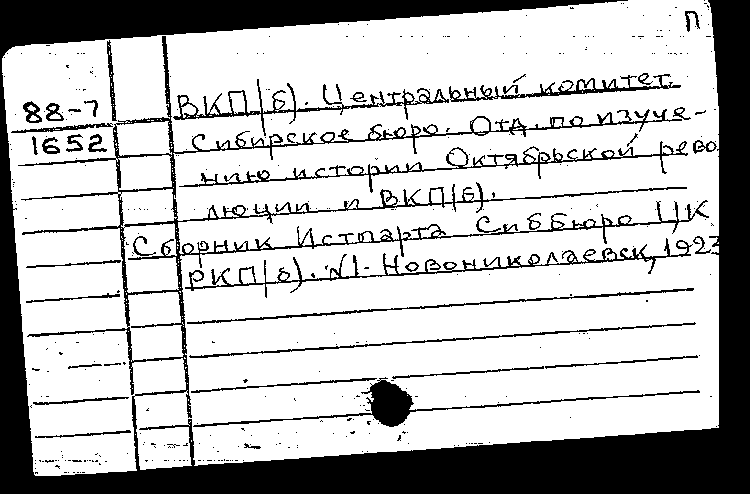 П
88-7
1652
ВКП(б). Центральный комитет.
Сибирское бюро. Отд. по изуче-
нию истории Октябрьской рево
люции и ВКП(б).
Сборник Истпарта Сиббюро ЦК
РКП(б). №1. Новониколаевск, 1923